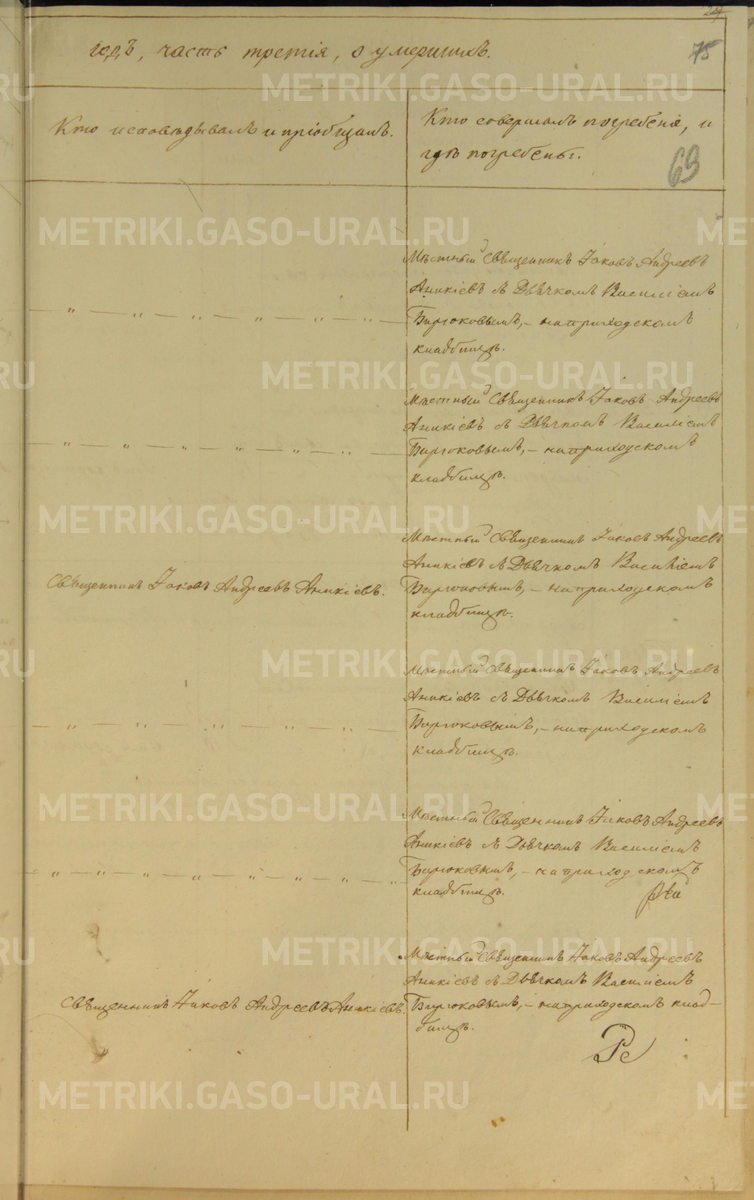 24
75
годъ, часть третія, о умершихъ.
Кто исповѣдывалъ и пріобщалъ.
Кто совершалъ погребеніе, и
гдѣ погребены.
69
Мѣстный Священникъ Іаковъ Андреевъ
Аникіевъ съ Дьячкомъ Василіемъ
Бирюковымъ, – на приходскомъ
кладбищѣ.
Мѣстный Священникъ Іаковъ Андреевъ
Аникіевъ съ Дьячкомъ Василіемъ
Бирюковымъ, – на приходскомъ
кладбищѣ.
Священникъ Іаковъ Андреевъ Аникіевъ.
Мѣстный Священникъ Іаковъ Андреевъ
Аникіевъ съ Дьячкомъ Василіемъ
Бирюковымъ, – на приходскомъ
кладбищѣ.
Мѣстный Священникъ Іаковъ Андреевъ
Аникіевъ съ Дьячкомъ Василіемъ
Бирюковымъ, – на приходскомъ
кладбищѣ.
Мѣстный Священникъ Іаковъ Андреевъ
Аникіевъ съ Дьячкомъ Василіемъ
Бирюковымъ, – на приходскомъ
кладбищѣ.
Священникъ Іаковъ Андреевъ Аникіевъ.
Мѣстный Священникъ Іаковъ Андреевъ
Аникіевъ съ Дьячкомъ Василіемъ
Бирюковымъ, – на приходскомъ клад-
бищѣ.
METRIKI.GASO-URAL.RU